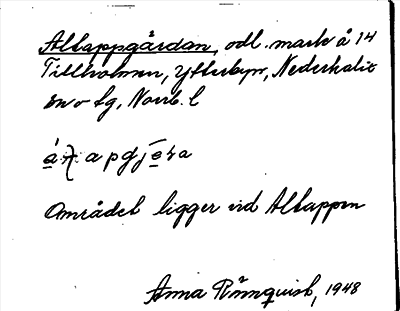 Altappgårdan, odl. mark å 14
Tillholmen, Ytterbyn, Nederkalix
sn o tg, Norrb. l
Området ligger vid Altappen
Anna Rönnquist, 1948